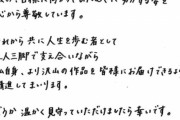 心から尊敬しています。
これから共に人生を歩む者として
二人三脚で支え合いながら
私自身、より沢山の作品を皆様にお届けできるよう
精進してまいります。
どうか温かく見守っていただけましたら幸いです。